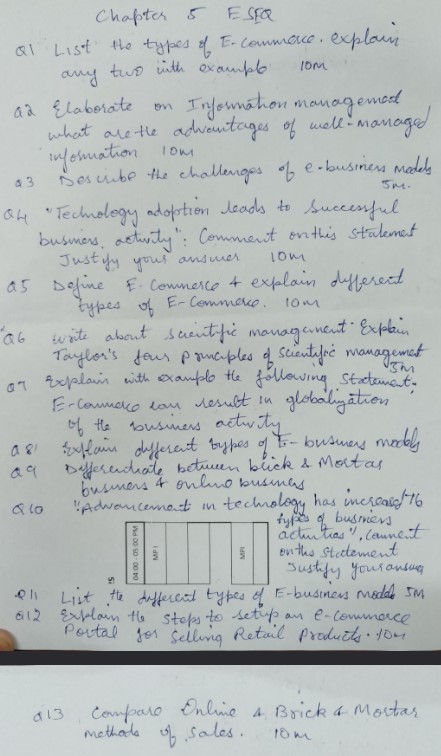 Chapter 5 ESEQ
Q1 List the types of E-Commerce. explain
any two with example 10m
Q2 Elaborate on Information management
what are the advantages of well-managed
information 10m
Q3 Describe the challenges of e-business models
5m.
Q4 "Technology adoption leads to Successful
business activity": Comment on this Statement
Justify your answer 10m
Q5 Define E-Commerce & explain different
types of E-Commerce. 10m
Q6 write about scientific management. Explain
Taylor's four principles of Scientific management
5m
Q7 Explain with example the following Statement.
E-Commerce can result in globalization
of the business activity
Q8 Explain different types of E-business models
Q9 Differentiate between brick & Mortar
business & online business
Q10 "Advancement in technology has increased
types of business
activities", Comment
on this Statement
Justify your answer
04:00 - 05:00 PM
MPI
MPI
15
Q11 List the different types of E-business models 5M
Q12 Explain the steps to setup an e-commerce
Portal for Selling Retail Products. 10m
Q13 Compare Online & Brick & Mortar
methods of Sales. 10m